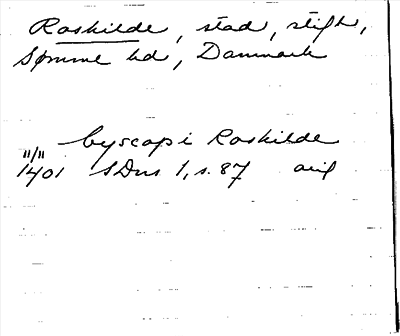 Roskilde, stad, stift,
Sømme hd, Danmark
byscop i Roskilde
11/11
1401 SDns 1, s. 87 orig